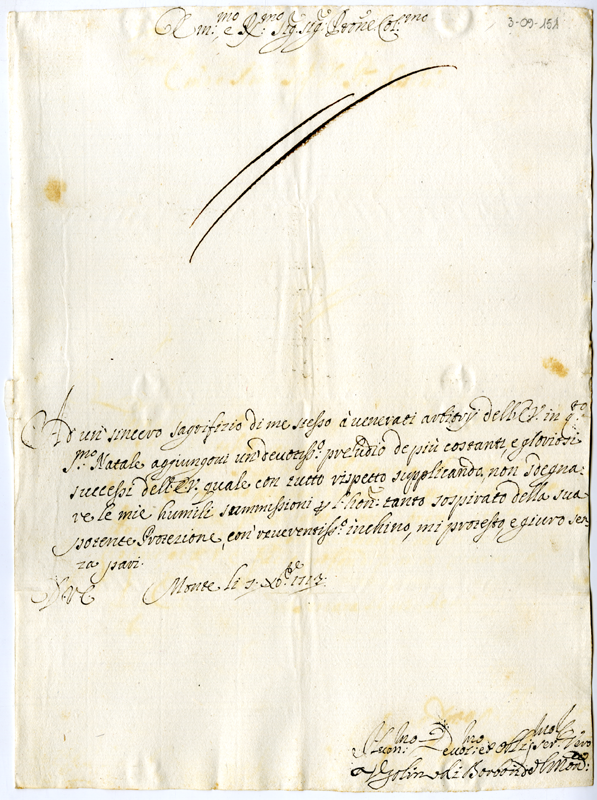 3-09-151
Em:mo e R:mo Sig: Sig: Prōne Col:mo
Ad un' sincero sagrifizio di me stesso à venerati arbitrÿ dell'EV: in q:to
S:mo Natale aggiungovi un' devotiss:o preludio de più costanti, e gloriosi
successi dell'EV: quale con tutto rispetto supplicando, non sdegna:
re le mie humili summissioni p l'hon: tanto sospirato della sua
potente Protezione, con reverentiss:o inchino, mi protesto, e giuro sen:
za pari.
DVE Monte li 9: Xbre 1713:
Hum:mo Devot:mo et obb: ser: vero
di Borbon del Monte